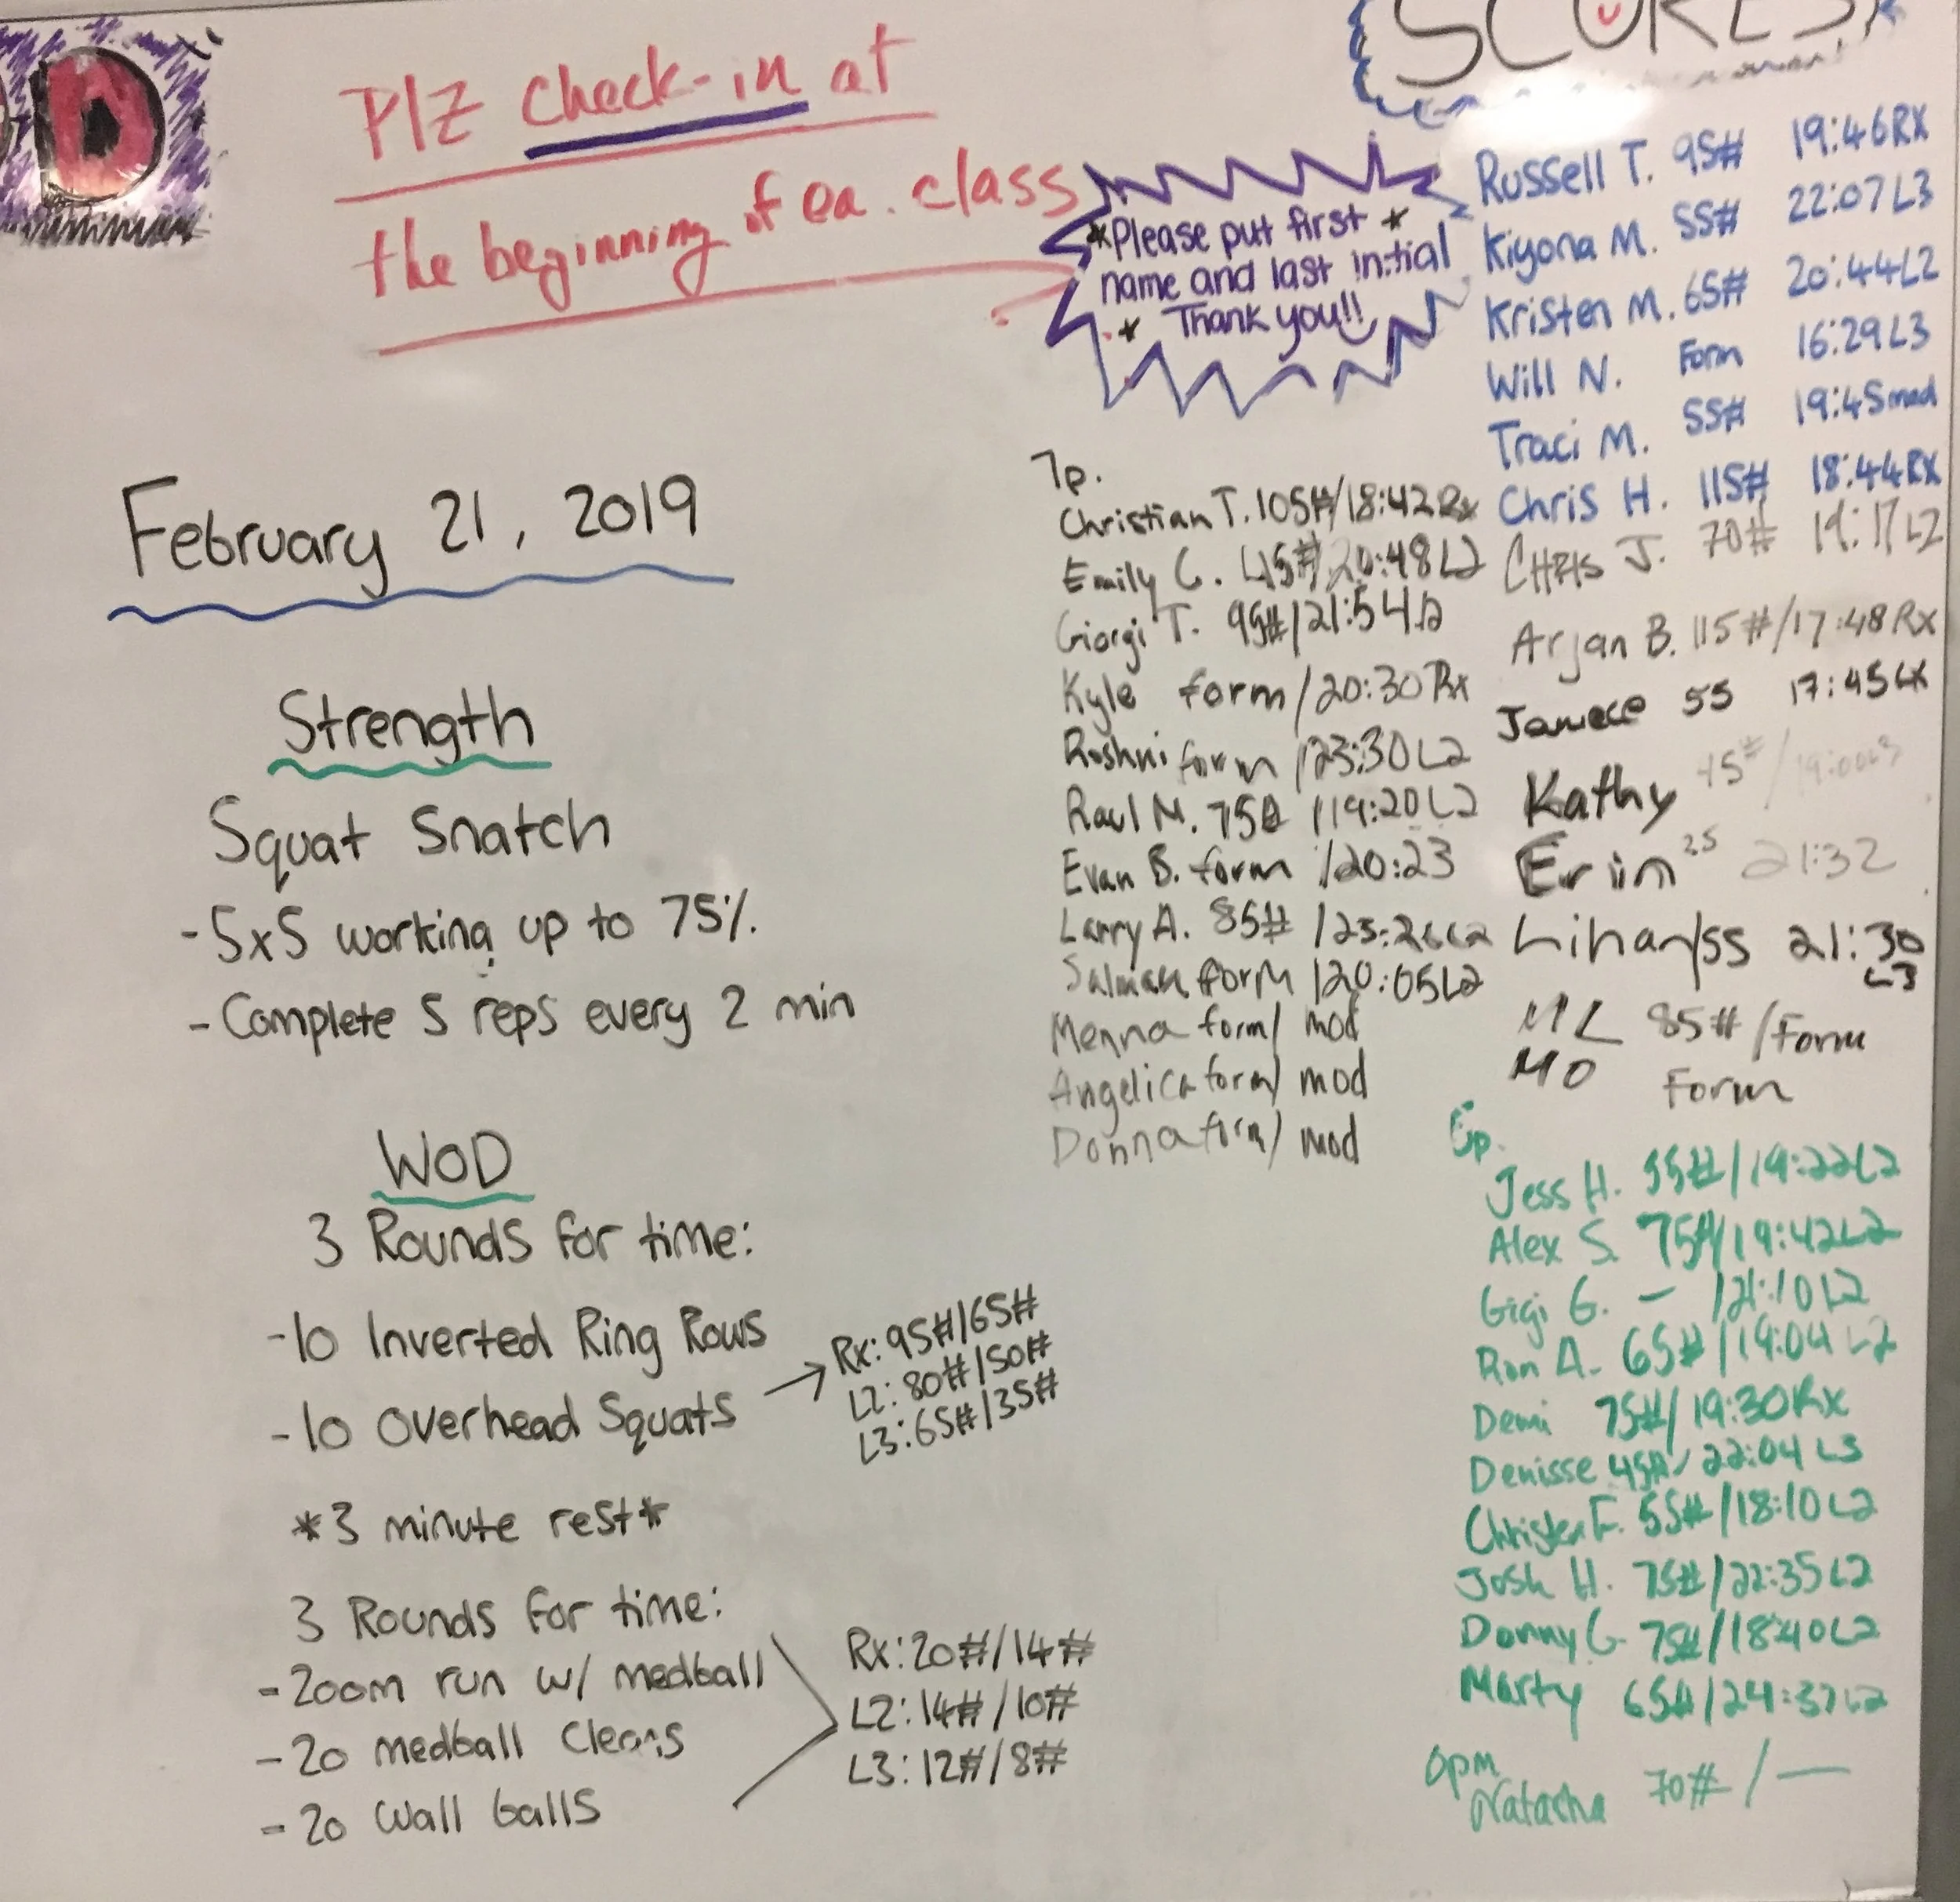 D
Plz check-in at
the beginning of ea. class
SCORES
*Please put first *
name and last initial
* Thank you!!
February 21, 2019
Strength
Squat Snatch
-5x5 working up to 75%.
-Complete 5 reps every 2 min
WOD
3 Rounds for time:
-10 Inverted Ring Rows
-10 Overhead Squats
Rx: 95#/65#
L2: 80#/50#
L3: 65#/35#
*3 minute rest*
3 Rounds for time:
-200m run w/ medball
-20 medball cleans
-20 wall balls
Rx: 20#/14#
L2: 14#/10#
L3: 12#/8#
7p.
Christian T. 105#/18:42Rx
Emily C. 45#/20:48L2
Giorgi T. 95#/21:54
Kyle form/20:30Rx
Roshni form/23:30L2
Raul M. 75#/19:20L2
Evan B. form/20:23
Larry A. 85#
Salman form/20:05L2
Menna form/ mod
Angelica form/ mod
Donna form/ mod
Russell T. 95# 19:46Rx
Kiyona M. 55# 22:07L3
Kristen M. 65# 20:44L2
Will N. Form 16:29L3
Traci M. 55# 19:45mod
Chris H. 115# 18:44Rx
CHRIS J. 70# 19:17L2
Arjan B. 115#/17:48Rx
55 17:45
Kathy
Erin 25 21:32
21:30
L3
ML 85#/Form
MO Form
Jess H. 55#/19:22L2
Alex S. 75#/19:42L2
Gigi G. — /21:10L2
Ron A. 65#/19:04 L2
Demi 75#/19:30Rx
Denisse 45#/22:04 L3
Christen F. 55#/18:10L2
Josh H. 75#/22:35L2
Donny G. 75#/18:40L2
Marty 65#/24:37L2
Natasha 70#/—